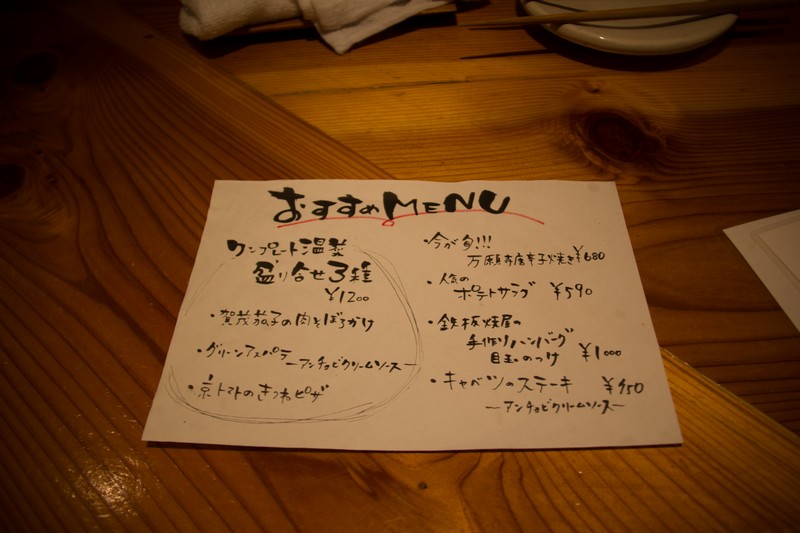 おすすめMENU
ワンプレート温菜
盛り合せ3種
¥1200
・賀茂茄子の肉そぼろかけ
・グリーンアスパラ
―アンチョビクリームソース―
・京トマトのきつねピザ
・今が旬!!!
万願寺唐辛子焼き ¥680
・人気の
ポテトサラダ ¥590
・鉄板焼屋の
手作りハンバーグ
目玉のっけ ¥1000
・キャベツのステーキ
―アンチョビクリームソース―